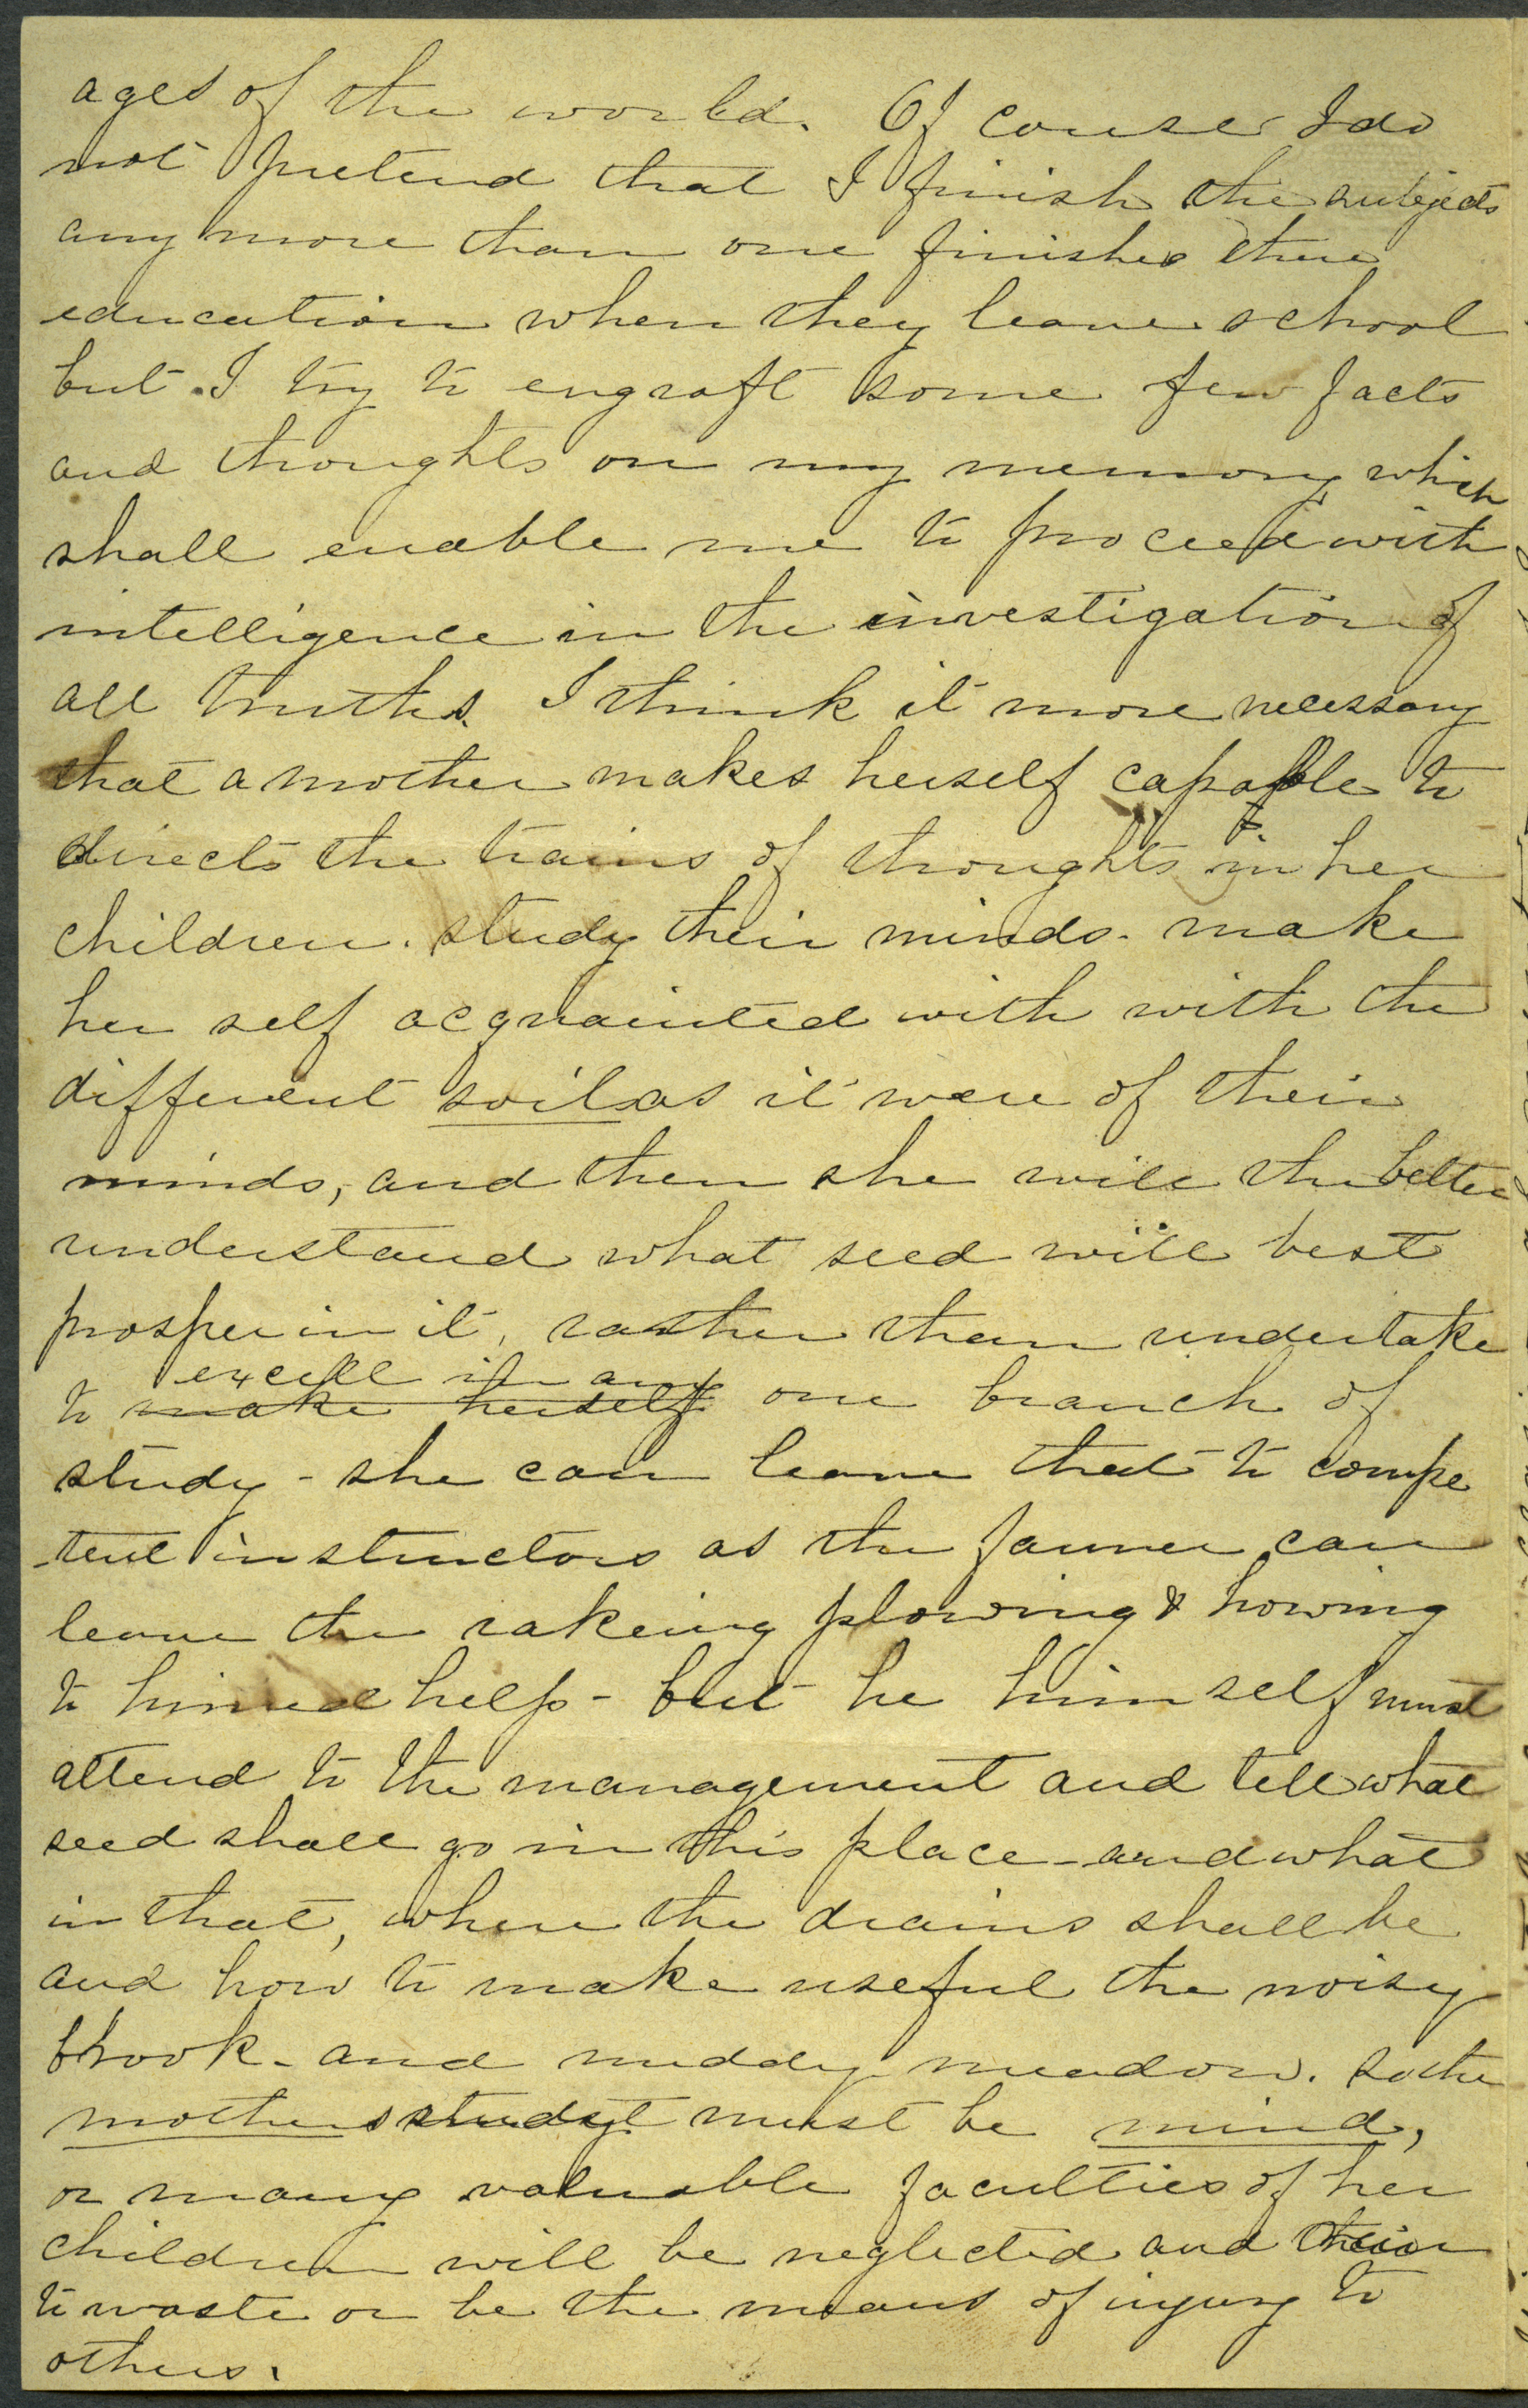 ages of the world. Of couse I do
not pretend that I finish the subjects
any more than one finishes there
education when they leave school
but I try to engraft some few facts
and thoughts on my memory which
shall enable me to proceed with
intelligence in the investigation of
all truths. I think it more necessary
that a mother makes herself capable to
directs the trains of thoughts in her
children. study their minds. make
her self acquainted with with the
different soil as it were of their
minds, and then she will the better
understand what seed will best
prosper in it, rather than undertake
excell in any
to make herself one branch of
study - she can leave that to compe
-tent instructors as the farmer can
leave the rakeing plowing & howing
to hired help - but he himself must
attend to the management and tell what
seed shall go in this place - and what
in that, where the drains shall be
and how to make useful the noisy
brook - and muddy meadow. so the
mothers study must be mind,
or many valuable faculties of her
children will be neglected and
to waste or be the means of injury to
others.